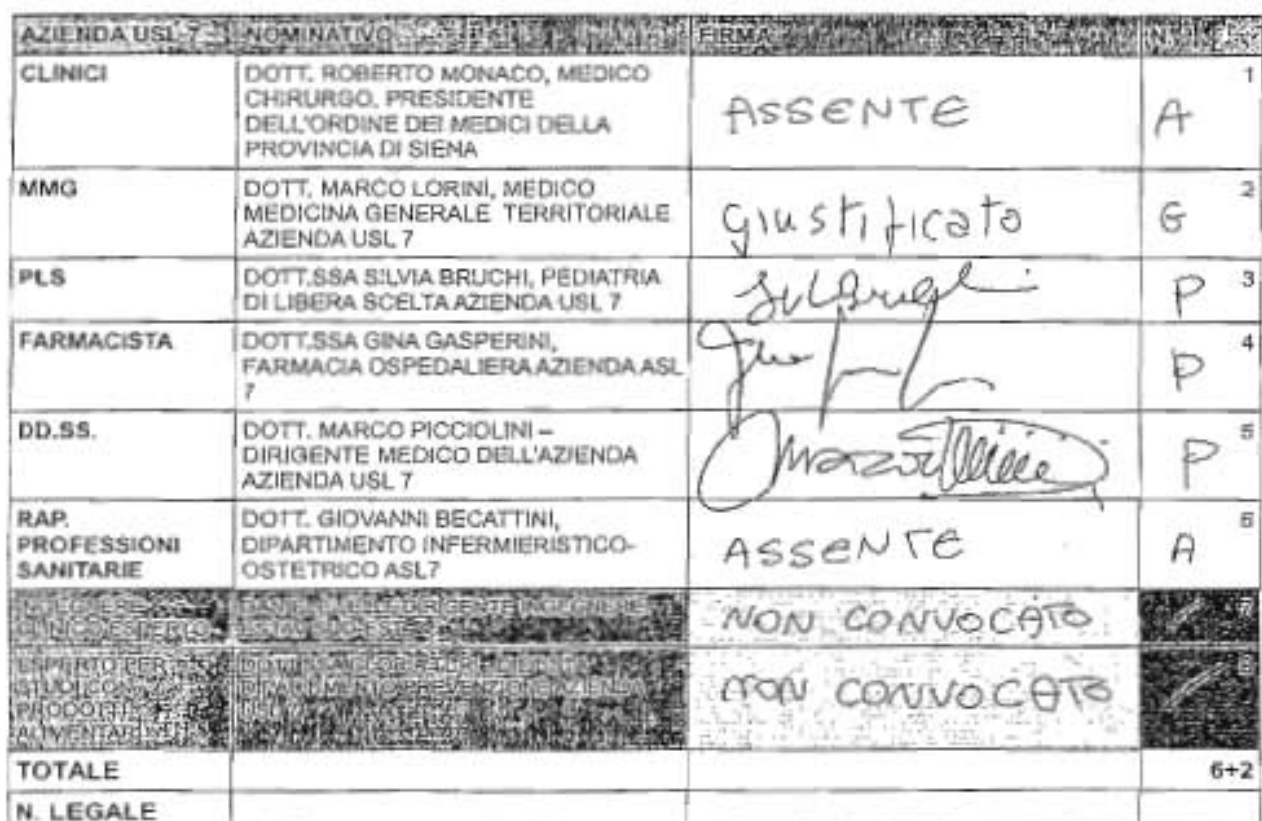 AZIENDA USL 7 NOMINATIVO FIRMA N.
CLINICI
DOTT. ROBERTO MONACO, MEDICO
CHIRURGO. PRESIDENTE
DELL'ORDINE DEI MEDICI DELLA
PROVINCIA DI SIENA
ASSENTE
A
1
MMG
DOTT. MARCO LORINI, MEDICO
MEDICINA GENERALE TERRITORIALE
AZIENDA USL 7
giustificato
G
2
PLS
DOTT.SSA SILVIA BRUCHI, PEDIATRIA
DI LIBERA SCELTA AZIENDA USL 7
P
3
FARMACISTA
DOTT.SSA GINA GASPERINI,
FARMACIA OSPEDALIERA AZIENDA ASL
7
P
4
DD.SS.
DOTT. MARCO PICCIOLINI –
DIRIGENTE MEDICO DELL'AZIENDA
AZIENDA USL 7
P
5
RAP.
PROFESSIONI
SANITARIE
DOTT. GIOVANNI BECATTINI,
DIPARTIMENTO INFERMIERISTICO-
OSTETRICO ASL7
ASSENTE
A
6
NON CONVOCATO
7
ESPERTO PER
PRODOTTI
ALIMENTARI
NON CONVOCATO
8
TOTALE
6+2
N. LEGALE